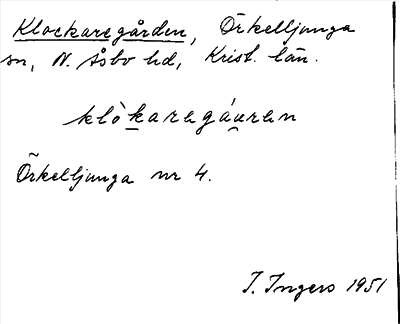 Klockaregården, Örkelljunga
sn, N. Åsbo hd, Krist. län.
klòkaragáuren
Örkelljunga nr 4.
I. Ingers 1951